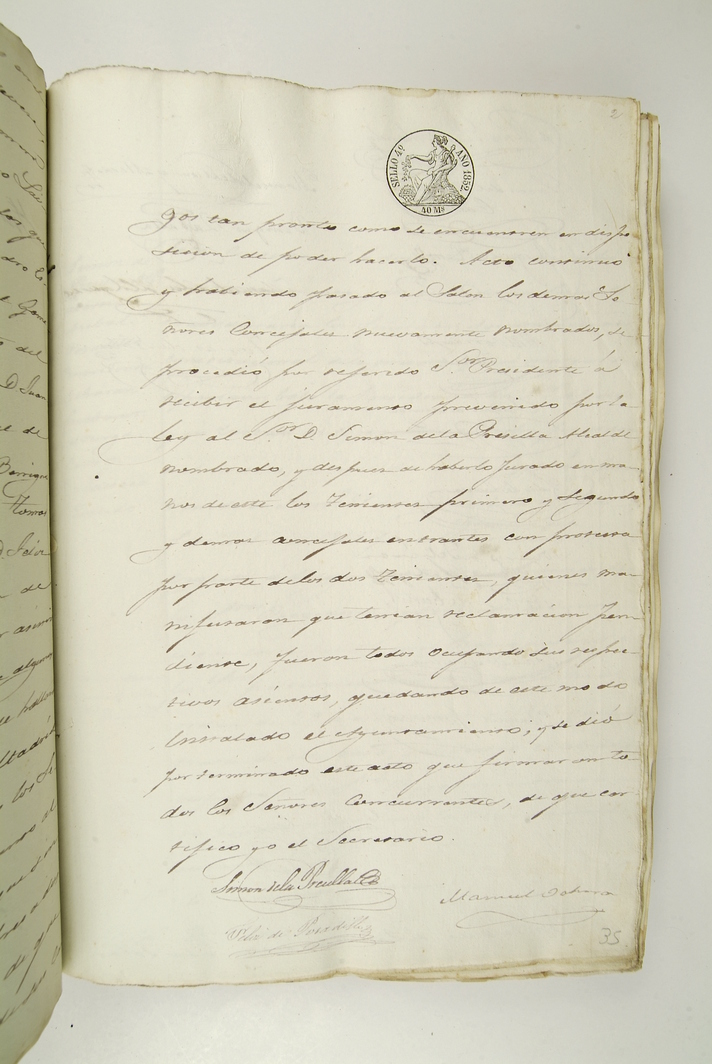 2
SELLO 4º AÑO 1852.
40 Ms
gos tan pronto como se encuentren en dispo-
sicion de poder hacerlo. Acto continuo
y habiendo pasado al Salon los demas Se-
ñores Concejales nuevamente nombrados, se
procedió por referido Sor. Presidente á
recibir el juramento prevenido por la
ley al Sor. D. Simon de la Presilla Alcalde
nombrado, y despues de haberlo jurado en ma-
nos de este los Tenientes primero y segundo
y demas concejales entrantes con protesta
por parte de los dos Tenientes, quienes ma-
nifestaron que tenian reclamacion pen-
diente, fueron todos ocupando sus respec-
tivos asientos, quedando de este modo
instalado el Ayuntamiento; y se dió
por terminado este acto que firmaron to-
dos los Señores Concurrentes, de que cer-
tifico yo el Secretario.
Simon de la Presilla
Manuel
de
35